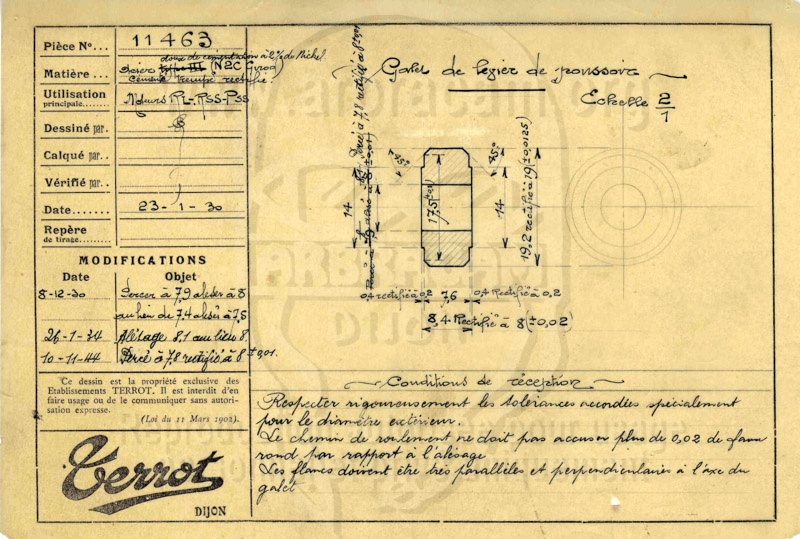 Pièce Nº... 11463
doux de cémentation à 2% de Nickel
Matière... Acier type III (N2C Girod)
Cémenté trempé rectifié.
Utilisation
principale....... Moteurs RL-RSS-PSS
Dessiné par.
Calqué par..
Vérifié par..
Date....... 23-1-30
Repère
de tirage...
MODIFICATIONS
Date Objet
8-12-30 Percer à 7,9 aléser à 8
au lieu de 7,4 alésés à 7,5
26-1-34 Alésage 8,1 au lieu 8.
10-11-44 Percé à 7,8 rectifié à 8
Ce dessin est la propriété exclusive des
Etablissements TERROT. Il est interdit d'en
faire usage ou de le communiquer sans autori-
sation expresse.
(Loi du 11 Mars 1902).
Terrot
DIJON
Galet de levier de poussoir
Echelle 2/1
Percé à 7,8 rectifié à 8
14
45°
17,5
45°
14
19,2 rectifié à 19 (±0,0125)
0,4 rectifié à 0,2 7,6 0,4 Rectifié à 0,2
8,4 Rectifié à 8 (±0,02)
DIJON
Conditions de réception
Respecter rigoureusement les tolérances accordées spécialement
pour le diamètre extérieur.
Le chemin de roulement ne doit pas accuser plus de 0,02 de faux
rond par rapport à l'alésage
Les flancs doivent être très parallèles et perpendiculaires à l'axe du
galet